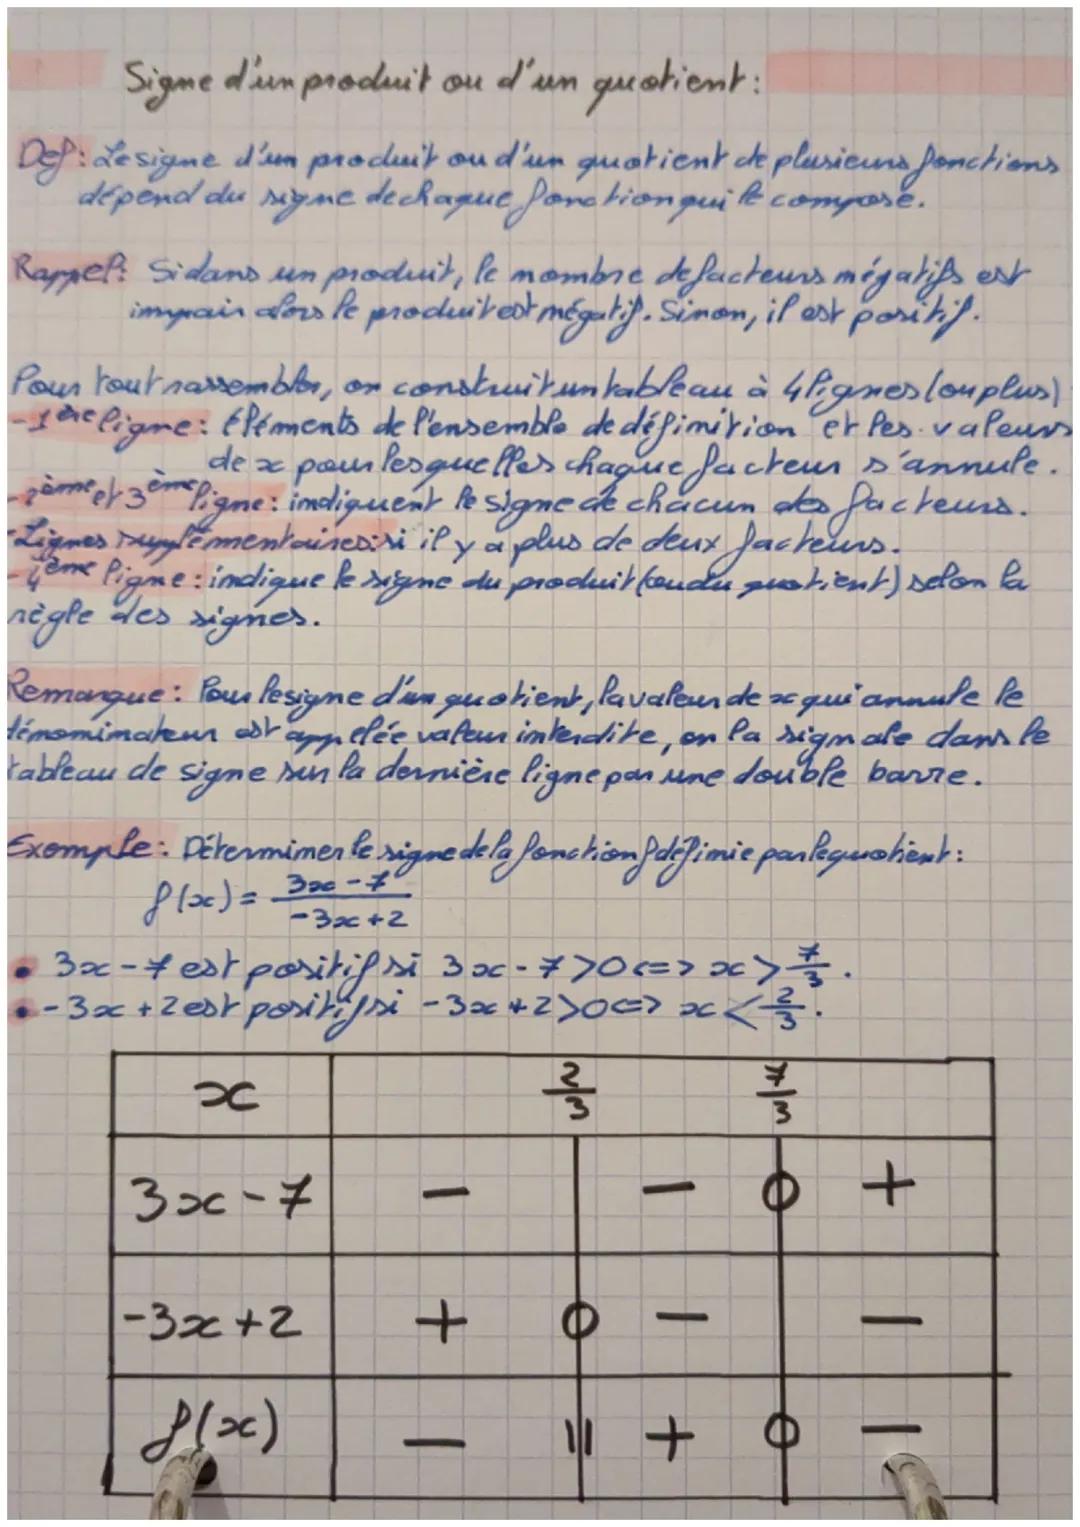 Signe d'un produit ou d'un quotient :
Def : Le signe d'un produit ou d'un quotient de plusieurs fonctions
dépend du signe de chaque fonction qui le compose.
Rappel : Si dans un produit, le nombre de facteurs négatifs est
impair alors le produit est négatif. Sinon, il est positif.
Pour tout rassembler, on construit un tableau à 4 lignes (ou plus)
- 1ère ligne : Eléments de l'ensemble de définition et les valeurs
de x pour lesquelles chaque facteur s'annule.
- 2ème et 3ème ligne : indiquent le signe de chacun des facteurs.
- Lignes supplémentaires : si il y a plus de deux facteurs.
- 4ème ligne : indique le signe du produit (ou du quotient) selon la
règle des signes.
Remarque : Pour le signe d'un quotient, la valeur de x qui annule le
dénominateur est appelée valeur interdite, on la signale dans le
tableau de signe sur la dernière ligne par une double barre.
Exemple : Déterminer le signe de la fonction f définie par le quotient :
f(x) = 3x - 7
-3x + 2
• 3x - 7 est positif si 3x - 7 > 0 <=> x > 7/3.
• -3x + 2 est positif si -3x + 2 > 0 <=> x < 2/3.
x 2/3 7/3
3x - 7 - - 0 +
-3x + 2 + 0 - -
f(x) - || + 0 -